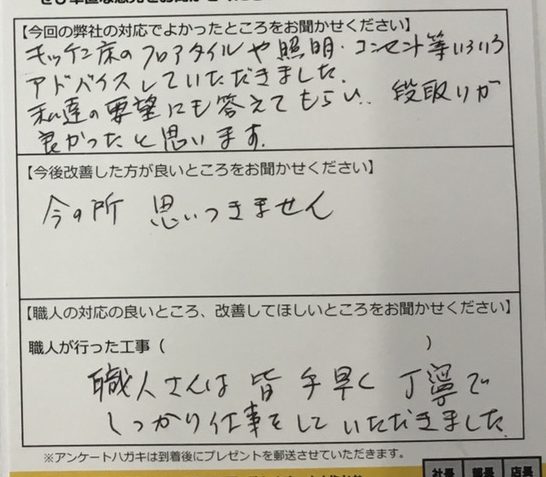 【今回の弊社の対応でよかったところをお聞かせください】
キッチン床のフロアタイルや照明・コンセント等いろいろ
アドバイスしていただきました。
私達の要望にも答えてもらい、段取りが
良かったと思います。
【今後改善した方が良いところをお聞かせください】
今の所 思いつきません
【職人の対応の良いところ、改善してほしいところをお聞かせください】
職人が行った工事（ ）
職人さんは皆手早く丁寧で
しっかり仕事をしていただきました。
※アンケートハガキは到着後にプレゼントを郵送させていただきます。
社長 部長 店長